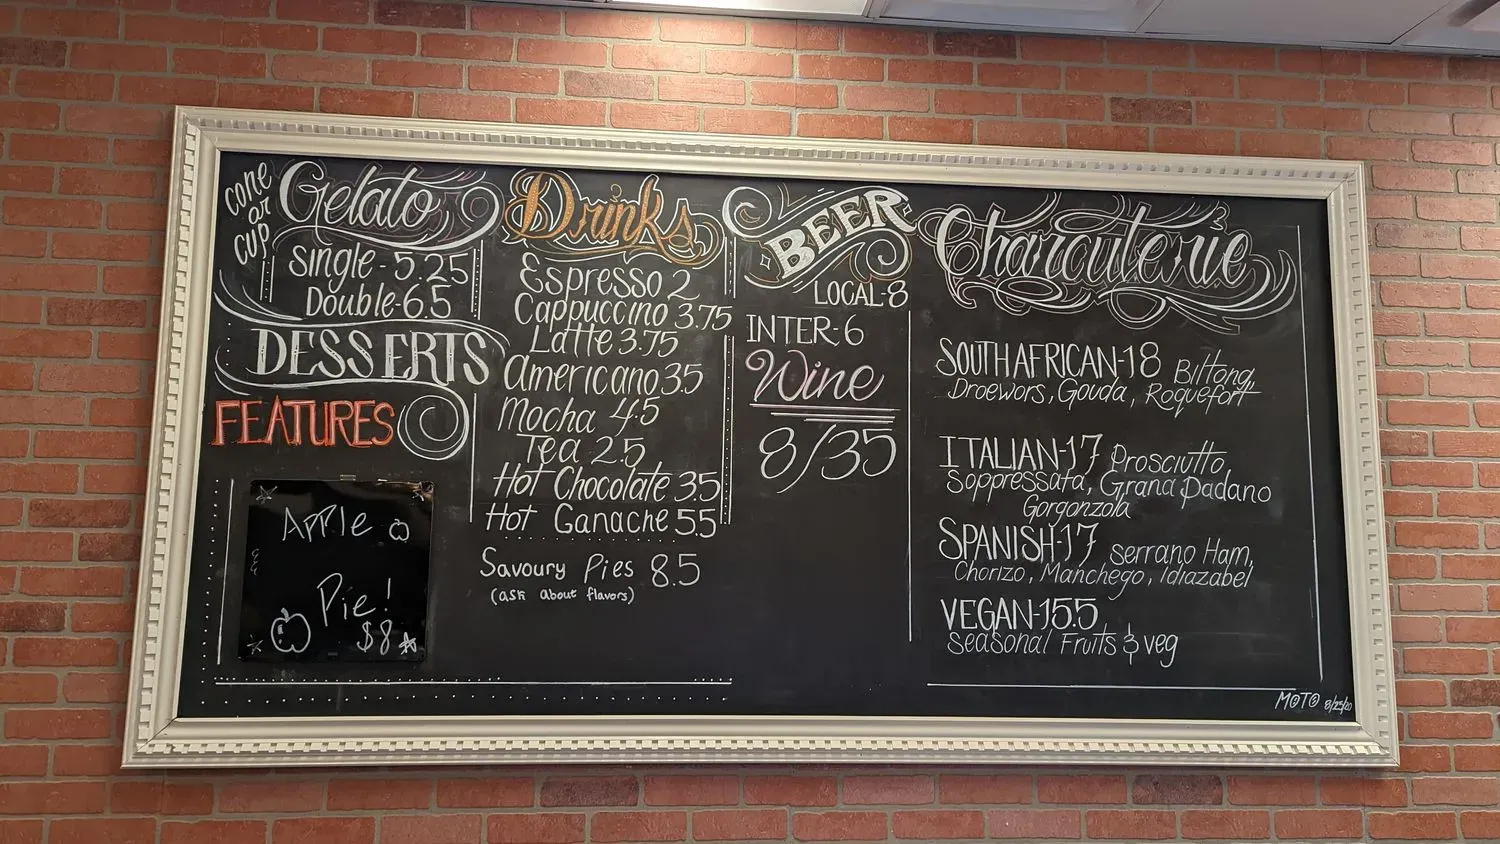 CONE
OR
CUP
Gelato
Single - 5.25
Double - 6.5
DESSERTS
FEATURES
APPLE
Pie!
$8
Drinks
Espresso 2
Cappuccino 3.75
Latte 3.75
Americano 35
Mocha 4.5
Tea 25
Hot Chocolate 35
Hot Ganache 55
Savoury Pies 8.5
(ask about flavors)
BEER
LOCAL-8
INTER-6
Wine
8/35
Charcuterie
SOUTH AFRICAN-18 Biltong,
Droewors, Gouda, Roquefort
ITALIAN-17 Prosciutto,
Soppressata, Grana Padano
Gorgonzola
SPANISH-17 Serrano Ham,
Chorizo, Manchego, Idiazabel
VEGAN-15.5
Seasonal Fruits & veg
MOTO 8/25/20